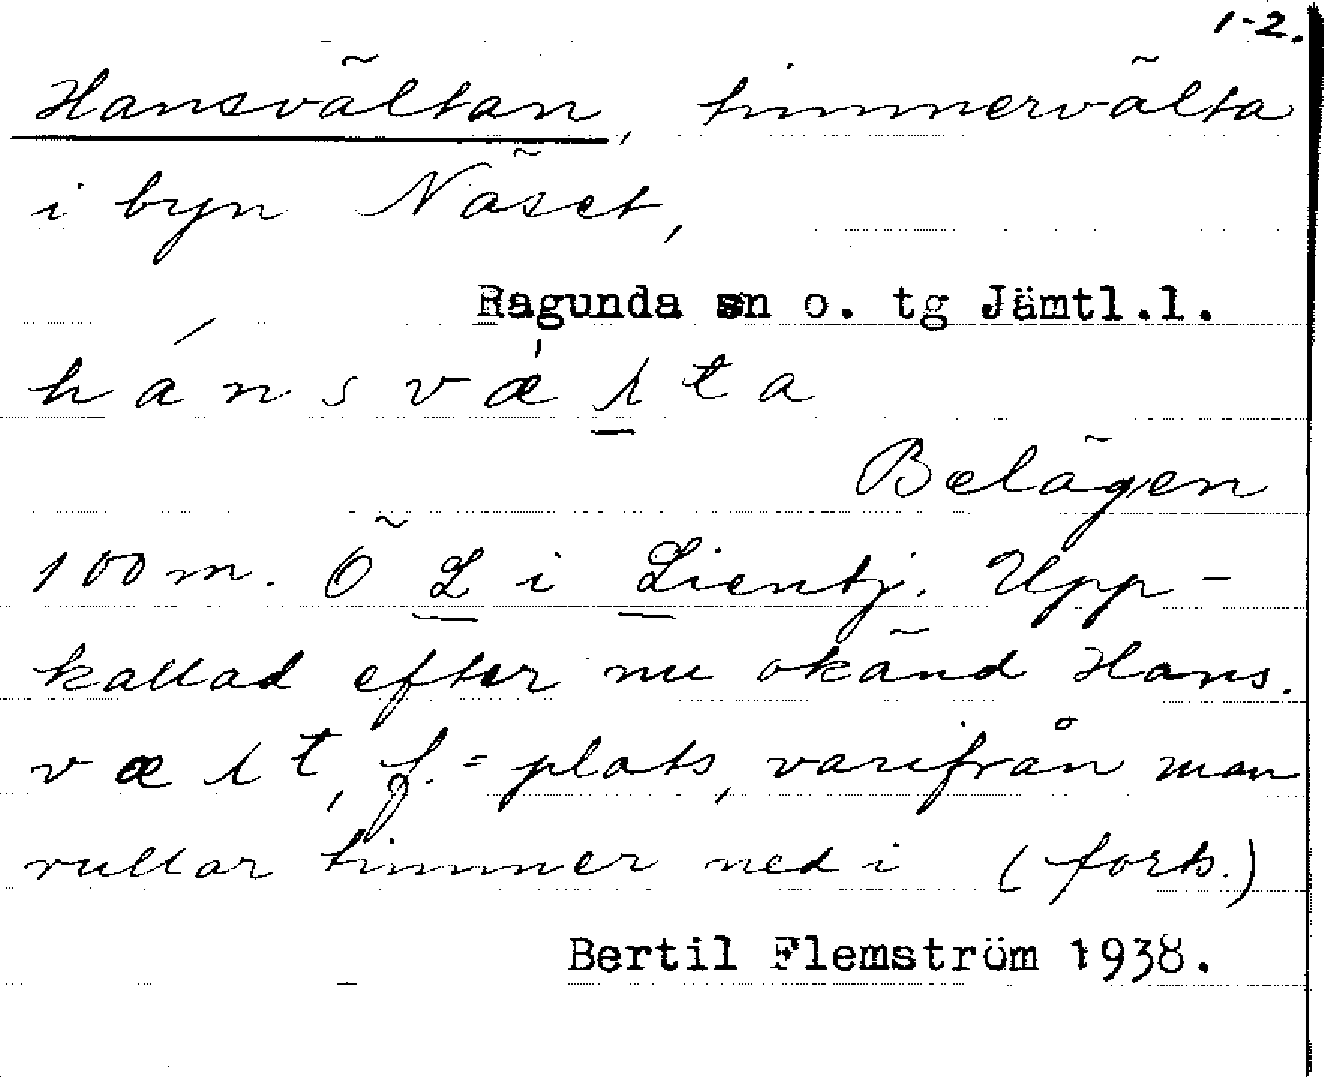 1-2.
Hansvältan, timmervälta
i byn Näset,
Ragunda sn o. tg Jämtl.l.
hánsvæ̍lta
Belägen
100 m. Ö L i Lientj. Upp-
kallad efter nu okänd Hans.
vælt, f. = plats, varifrån man
rullar timmer ned i (forts.)
Bertil Flemström 1938.